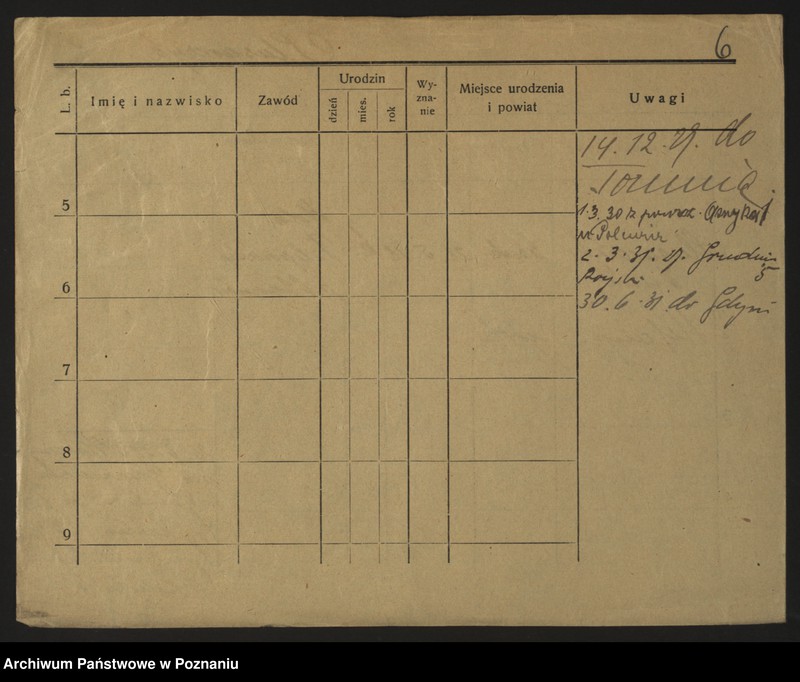 6
L. b.
Imię i nazwisko
Zawód
Urodzin
dzień
mies.
rok
Wy-
zna-
nie
Miejsce urodzenia
i powiat
Uwagi
14. 12. 29. do
1.3.30 z powrot.
2. 3. 31.
30. 6. 31. do Gdyni
5
6
7
8
9
Archiwum Państwowe w Poznaniu